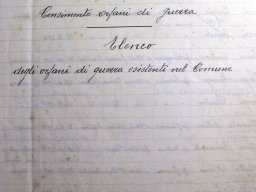 Censimento orfani di guerra
Elenco
degli orfani di guerra esistenti nel Comune